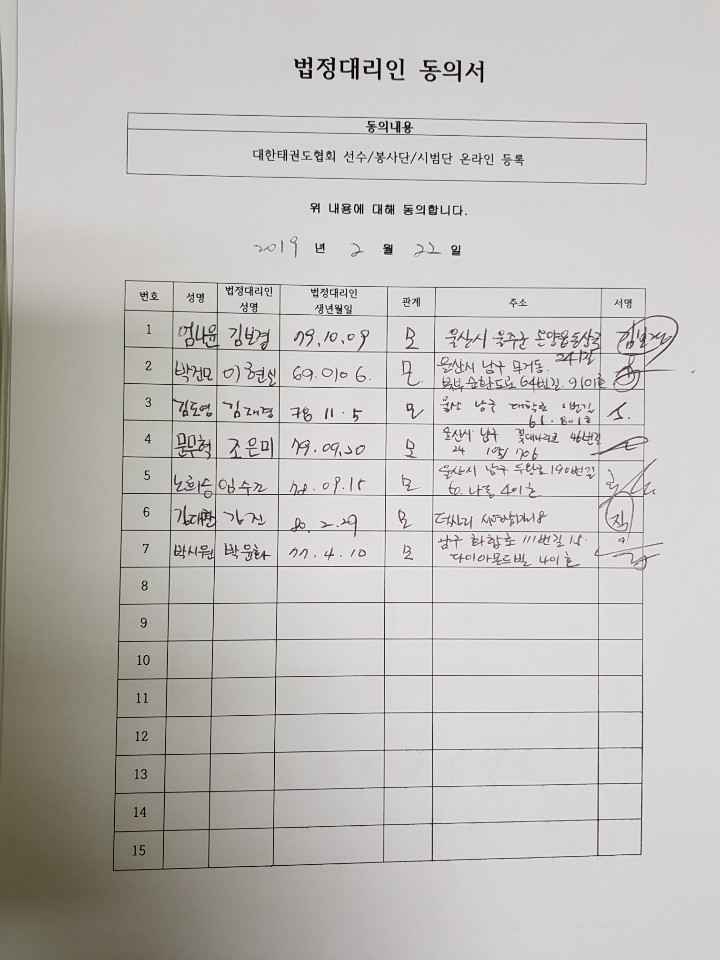 법정대리인 동의서
동의내용
대한태권도협회 선수/봉사단/시범단 온라인 등록
위 내용에 대해 동의합니다.
2019 년 2 월 22 일
번호 성명 법정대리인 성명 법정대리인 생년월일 관계 주소 서명
1 엄나윤 김보경 79.10.09 모 울산시 울주군 온양읍
2 박건모 이현실 69.0106. 모 울산시 남구 무거동.
북부순환도로 64번길. 9
3 김도영 김재경 78 11.5 모 울산 남구 대학로 번길
61. 801호
4 문무혁 조은미 79.09.20 모 울산시 남구 꽃대나리로 46번길
24 105/706
5 노희승 임수 78.09.15 모 울산시 남구 두왕로 190번길
나동 401호
6 김대환 김진 80.2.29 모
7 박시원 박윤화 77.4.10 모 남구 화합로 111번길 15.
다이아몬드빌 401호
8
9
10
11
12
13
14
15